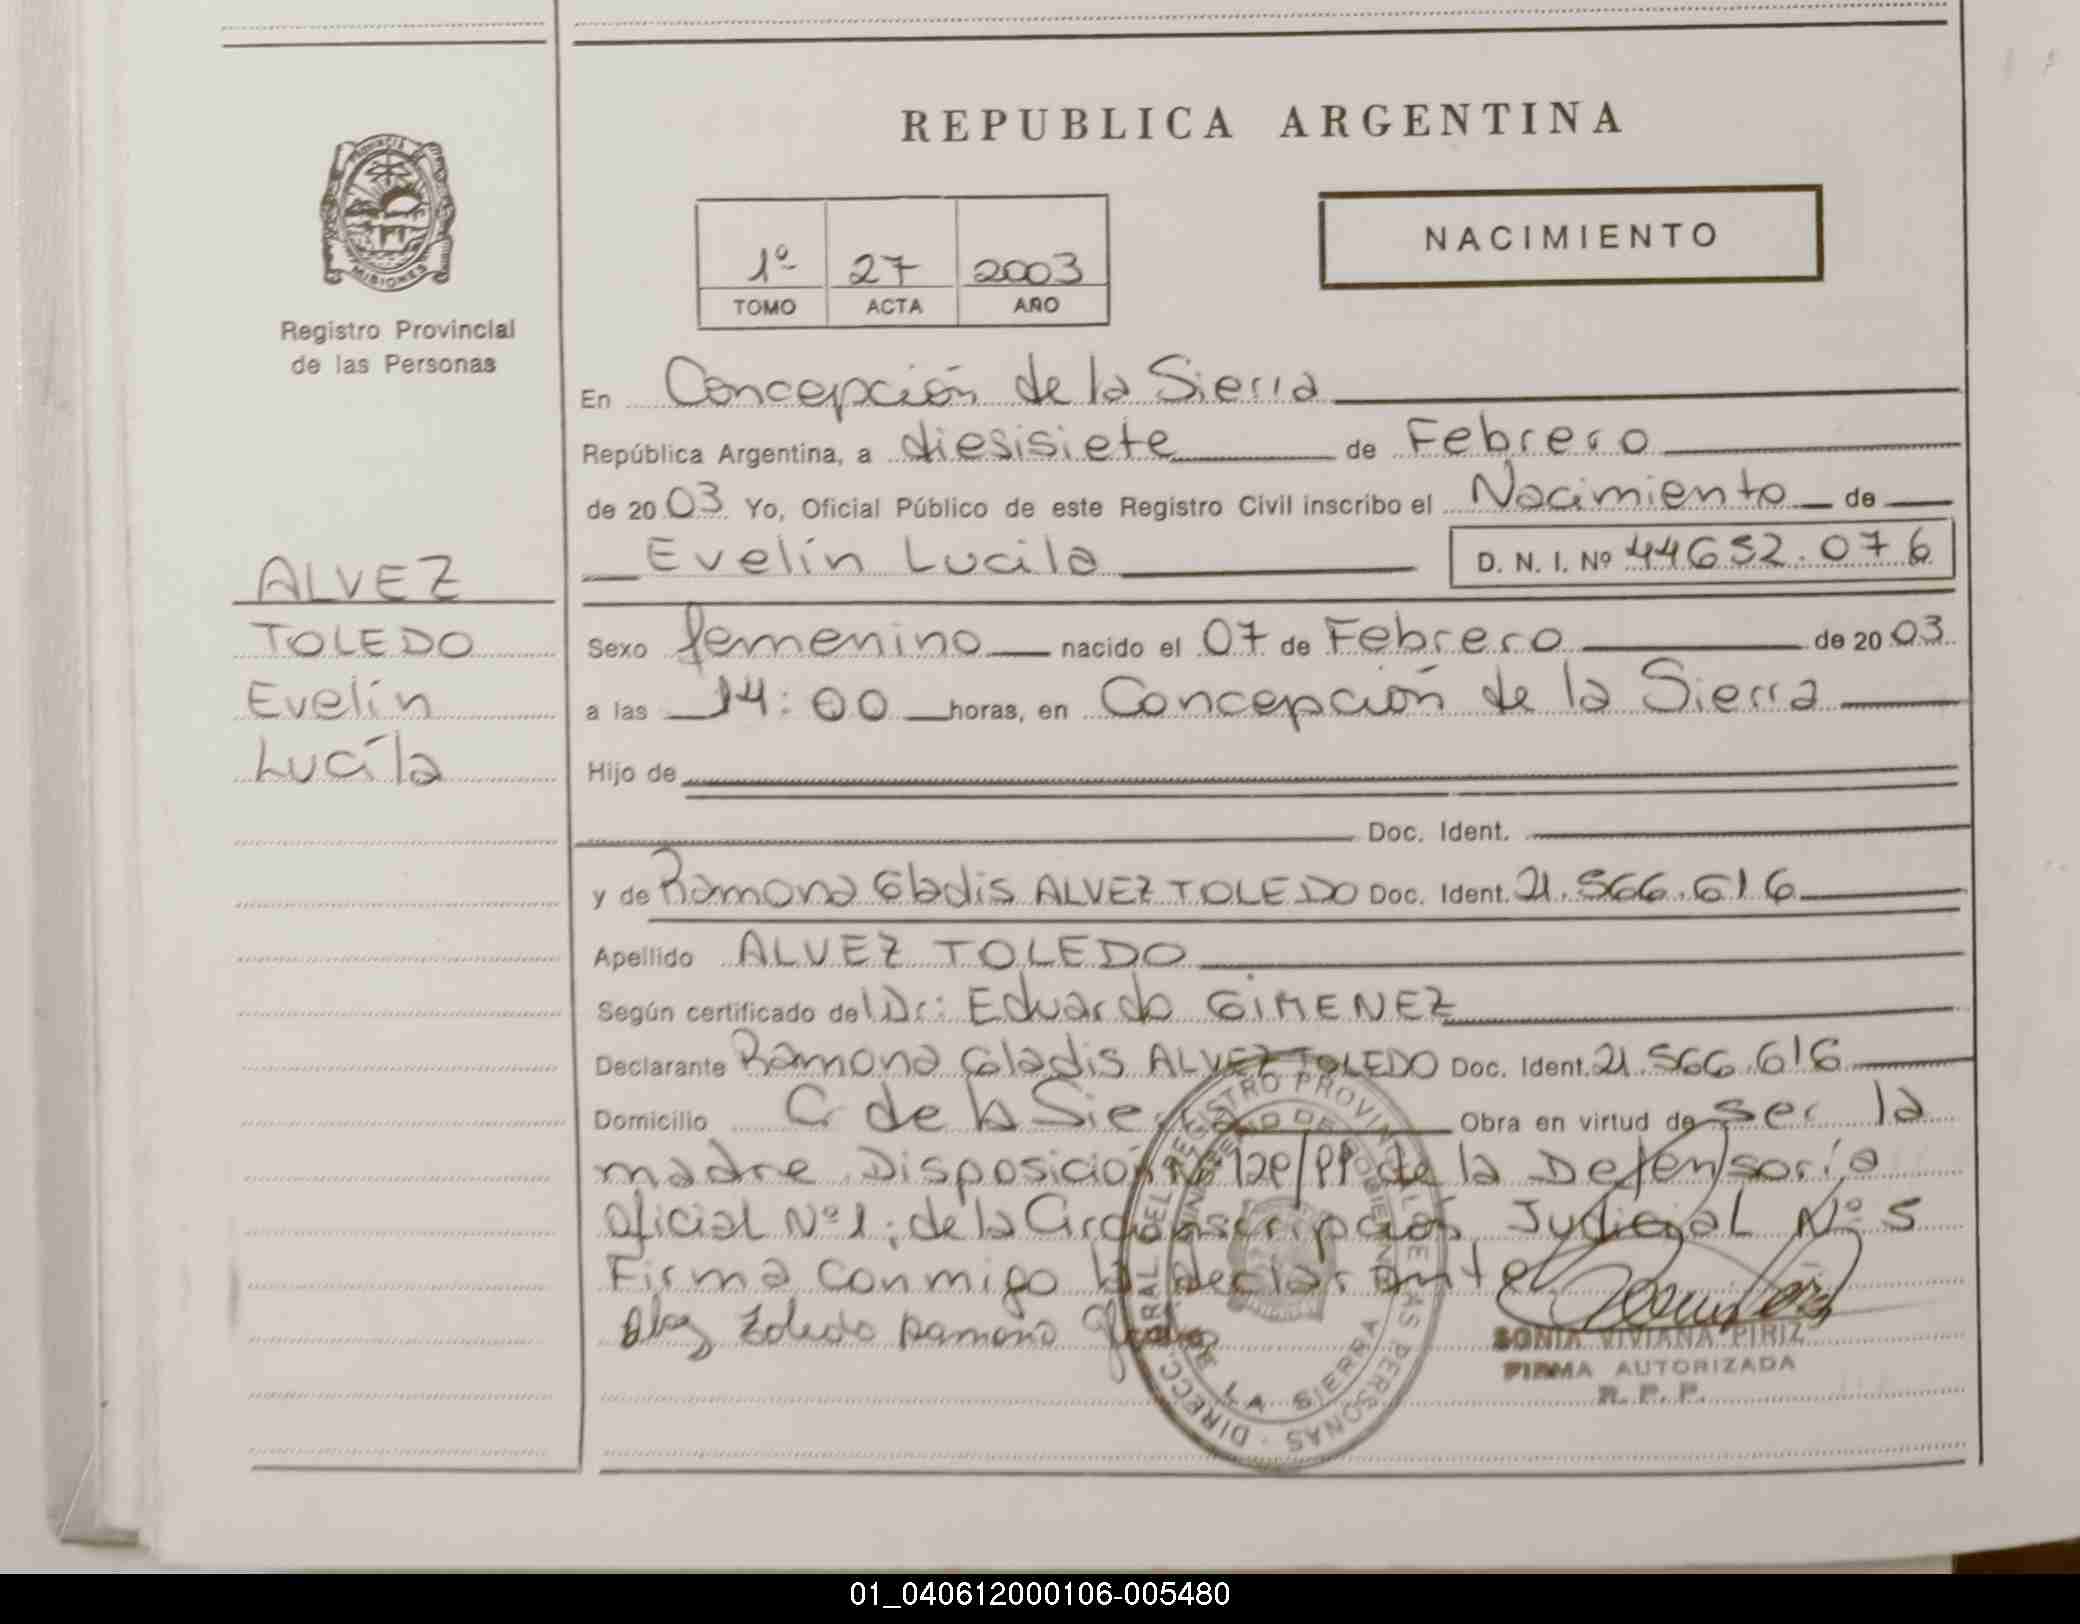 REPUBLICA ARGENTINA
PROVINCIA
MISIONES
Registro Provincial
de las Personas
1º 27 2003
TOMO ACTA AÑO
NACIMIENTO
En Concepción de la Sierra
República Argentina, a diesisiete de Febrero
de 2003 Yo, Oficial Público de este Registro Civil inscribo el Nacimiento de
Evelin Lucila D. N. I. Nº 44652.076
ALVEZ
TOLEDO
Evelin
Lucila
Sexo femenino nacido el 07 de Febrero de 2003
a las 14:00 horas, en Concepción de la Sierra
Hijo de
Doc. Ident.
y de Ramona Gladis ALVEZ TOLEDO Doc. Ident. 21.566.616
Apellido ALVEZ TOLEDO
Según certificado del Dr: Eduardo GIMENEZ
Declarante Ramona Gladis ALVEZ TOLEDO Doc. Ident. 21.566.616
Domicilio C. de la Sierra Obra en virtud de ser la
madre Disposición de la Defensoría
Oficial Nº 1; de la Circunscripción Judicial Nº 5
Firma conmigo la declarante
Toledo Ramona
DIRECC. GENERAL DEL REGISTRO PROVINCIAL DE LAS PERSONAS
LA SIERRA
SONIA VIVIANA PIRIZ
FIRMA AUTORIZADA
R. P. P.
01_040612000106-005480